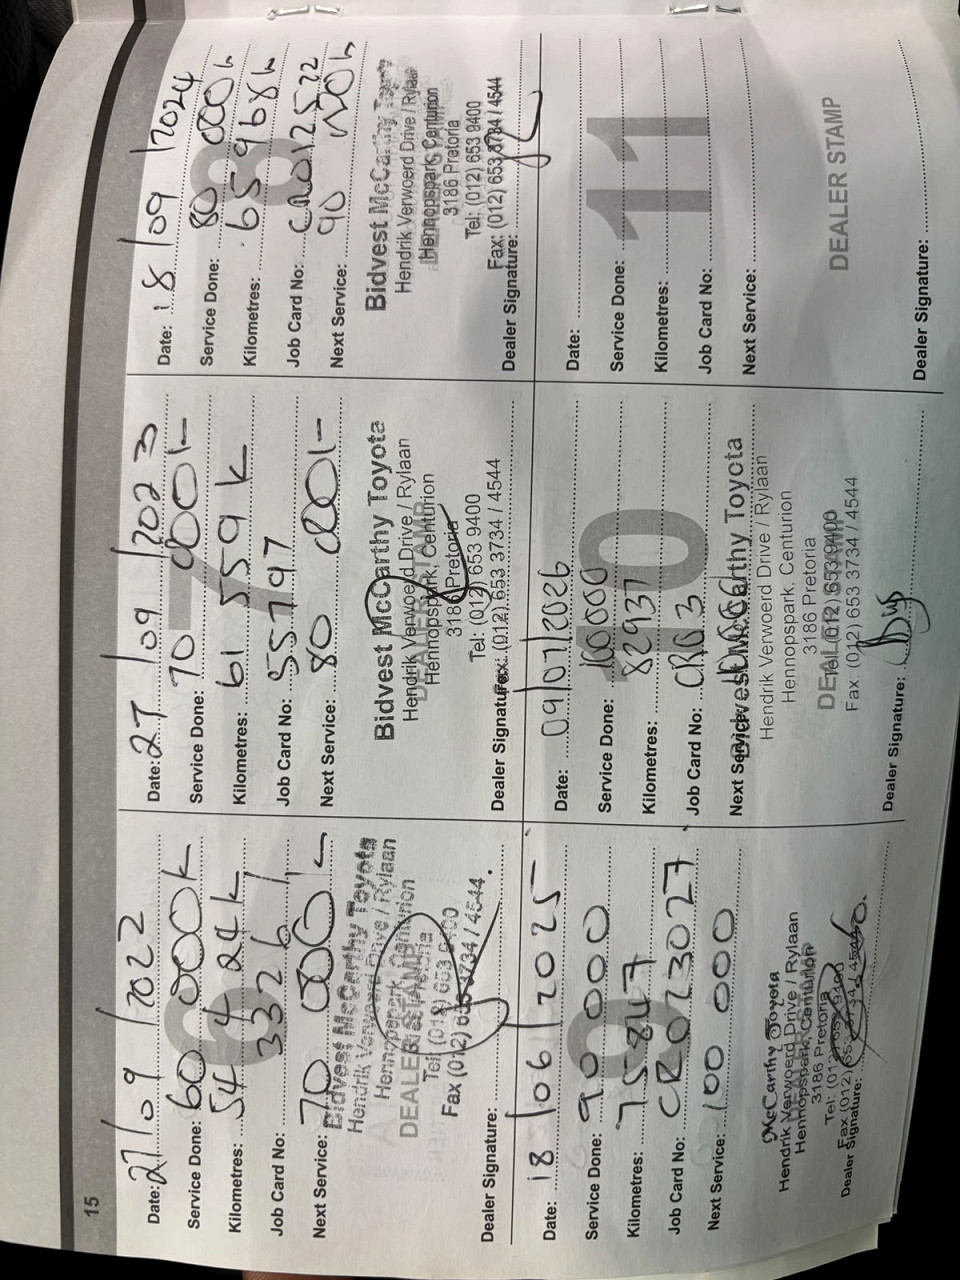 15
6
Date: 27/09/2022
Service Done: 60 000k
Kilometres: 54 424k
Job Card No: 33261
Next Service: 70 000k
Bidvest McCarthy Toyota
Hendrik Verwoerd Drive / Rylaan
Hennopspark, Centurion
DEALER STAMP
Pretoria
Tel: (012) 653 9400
Fax (012) 653 3734 / 4544
Dealer Signature:
7
Date: 27/09/2023
Service Done: 70 000k
Kilometres: 61 559k
Job Card No: 55797
Next Service: 80 000k
Bidvest McCarthy Toyota
Hendrik Verwoerd Drive / Rylaan
DEALER STAMP
Hennopspark, Centurion
3186 Pretoria
Tel: (012) 653 9400
Fax: (012) 653 3734 / 4544
Dealer Signature:
8
Date: 18/09/2024
Service Done: 80 000k
Kilometres: 65 968k
Job Card No:
Next Service: 90 000k
Bidvest McCarthy Toyota
Hendrik Verwoerd Drive / Rylaan
Hennopspark, Centurion
3186 Pretoria
Tel: (012) 653 9400
Fax: (012) 653 3734 / 4544
Dealer Signature:
9
Date: 18/06/2025
Service Done: 90 000
Kilometres: 75847
Job Card No: CR023027
Next Service: 100 000
McCarthy Toyota
Hendrik Verwoerd Drive / Rylaan
Hennopspark, Centurion
3186 Pretoria
Tel: (012) 653 9400
Fax (012) 653 3734 / 4544
Dealer Signature:
10
Date: 09/07/2026
Service Done: 100000
Kilometres: 82937
Job Card No:
Next Service:
Bidvest McCarthy Toyota
Hendrik Verwoerd Drive / Rylaan
Hennopspark, Centurion
3186 Pretoria
DEALER STAMP
Tel: (012) 653 9400
Fax (012) 653 3734 / 4544
Dealer Signature:
11
Date:
Service Done:
Kilometres:
Job Card No:
Next Service:
DEALER STAMP
Dealer Signature: